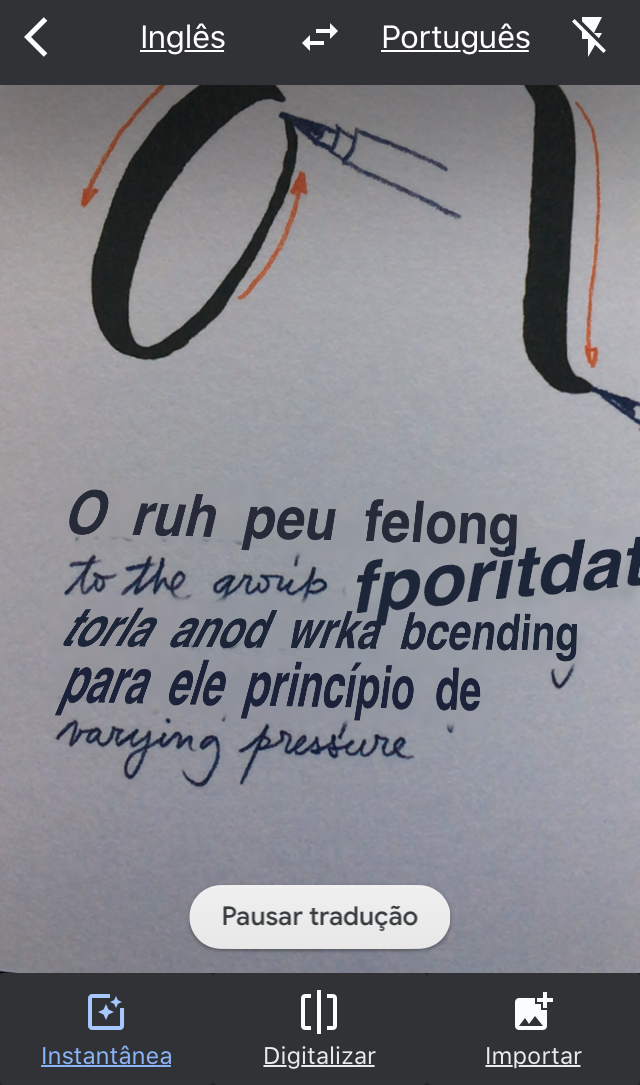 Inglês Português
O ruh peu felong
to the group fporitdat
torla anod wrka bcending
para ele princípio de
varying pressure
Pausar tradução
Instantânea Digitalizar Importar